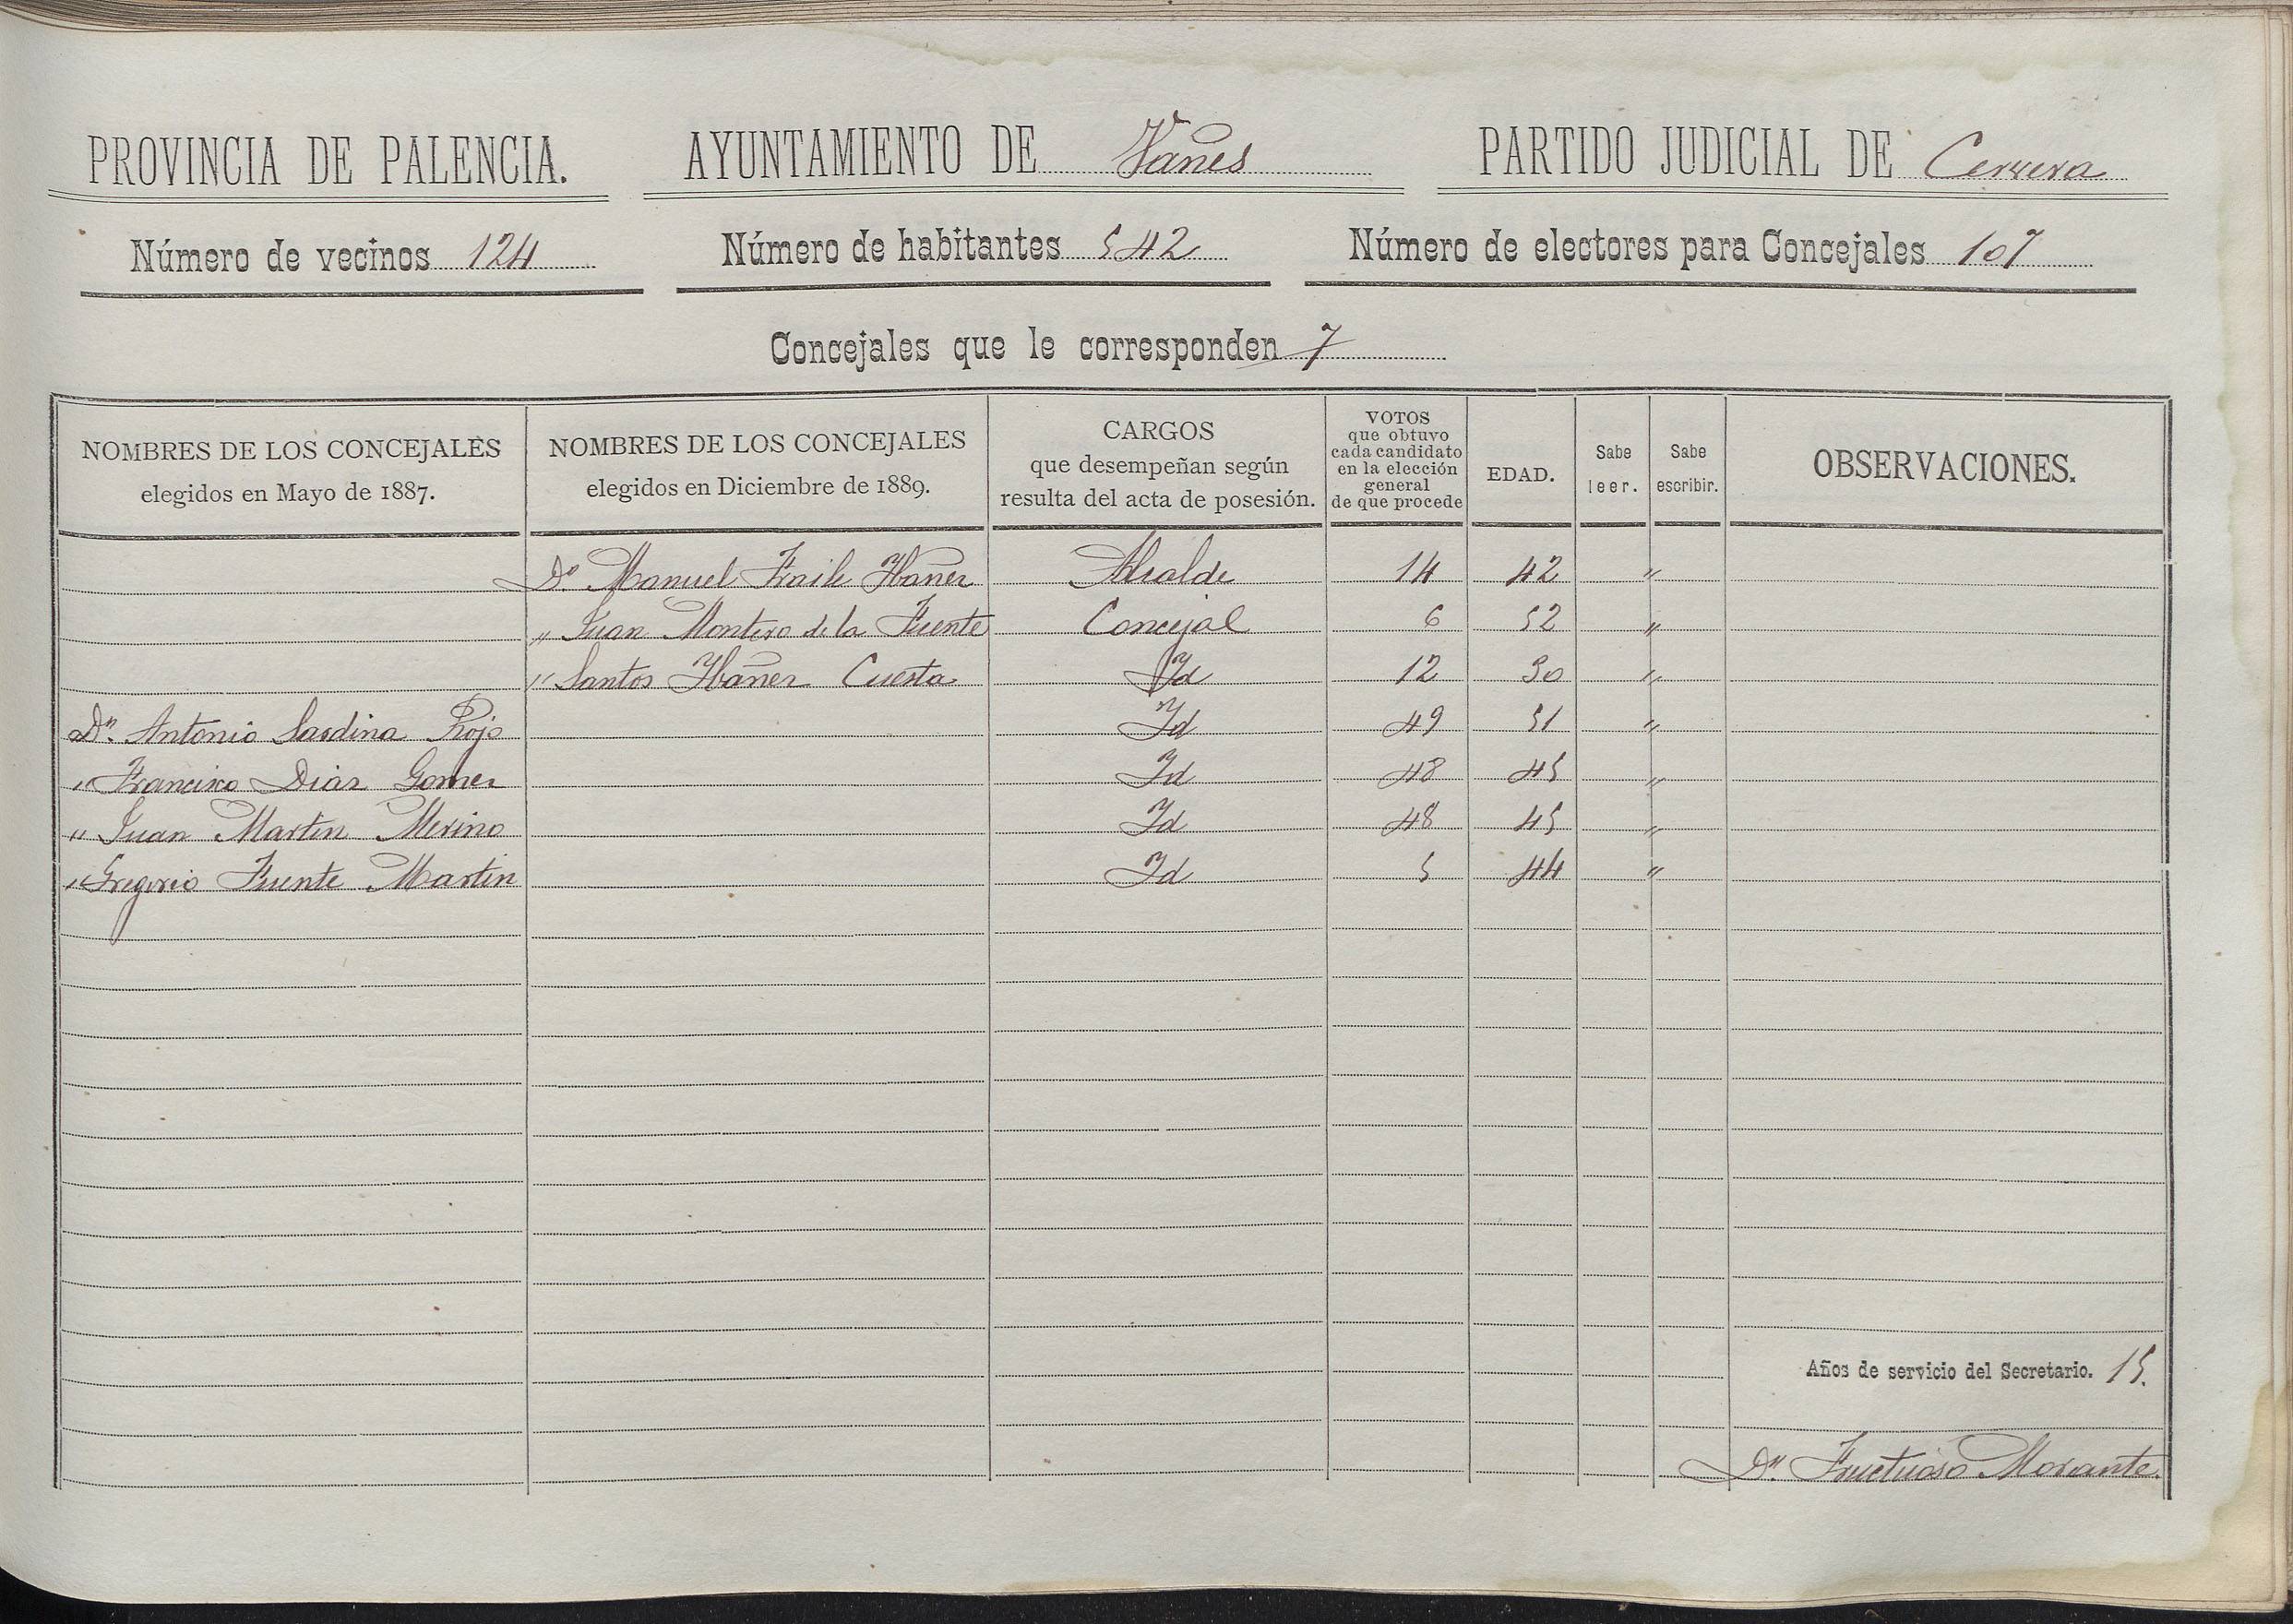 PROVINCIA DE PALENCIA. AYUNTAMIENTO DE Vañes PARTIDO JUDICIAL DE Cervera
Número de vecinos 124 Número de habitantes 542 Número de electores para Concejales 107
Concejales que le corresponden 7
NOMBRES DE LOS CONCEJALES
elegidos en Mayo de 1887.
NOMBRES DE LOS CONCEJALES
elegidos en Diciembre de 1889.
CARGOS
que desempeñan según
resulta del acta de posesión.
VOTOS
que obtuvo
cada candidato
en la elección
general
de que procede
EDAD.
Sabe
leer.
Sabe
escribir.
OBSERVACIONES.
Dn. Manuel Fraile Ybañez Alcalde 14 42 "
" Juan Montero de la Fuente Concejal 6 52 "
" Santos Ybañez Cuesta Yd 12 30 "
Dn. Antonio Sardina Rojo Yd 49 51 "
" Francisco Diaz Gomez Yd 48 45 "
" Juan Martin Merino Yd 48 45 "
" Gregorio Fuente Martin Yd 5 44 "
Años de servicio del Secretario. 15.
Dn. Fructuoso Morante.